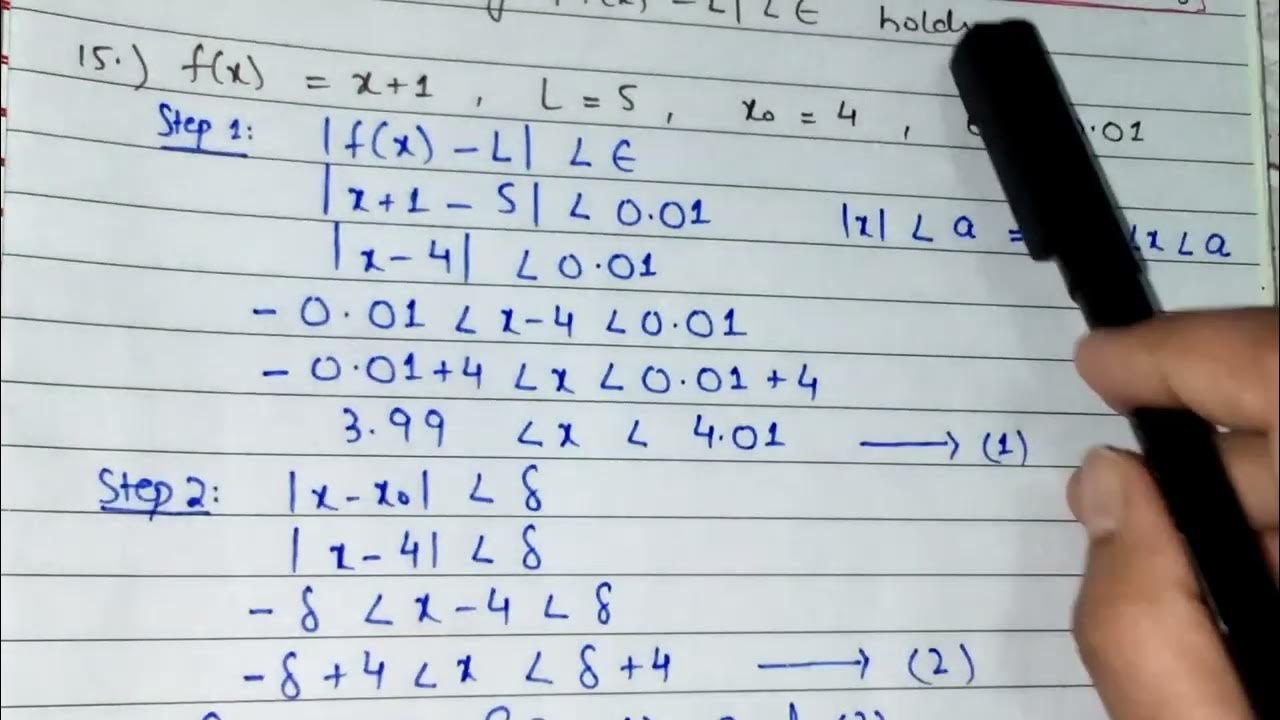 - L| < ϵ holds
15.) f(x) = x+1 , L = 5 , x₀ = 4 , 0.01
Step 1: |f(x) - L| < ϵ
|x+1 - 5| < 0.01
|x| < a = < x < a
|x - 4| < 0.01
- 0.01 < x-4 < 0.01
- 0.01+4 < x < 0.01+4
3.99 < x < 4.01 ⟶ (1)
Step 2: |x - x₀| < δ
|x - 4| < δ
- δ < x - 4 < δ
- δ + 4 < x < δ + 4 ⟶ (2)